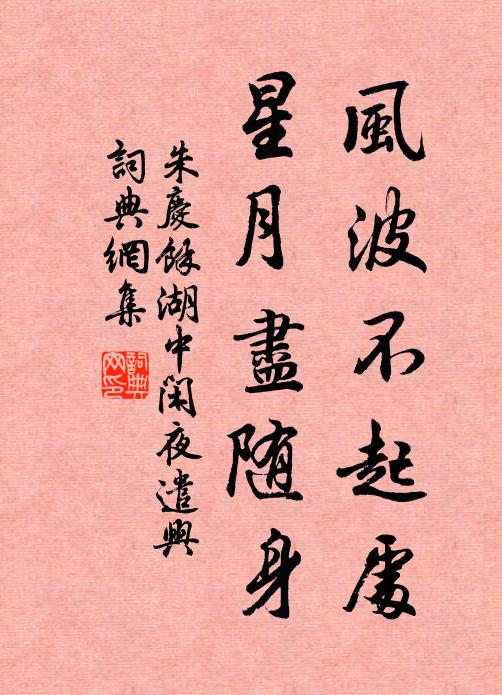 風波不起處
星月盡随身
朱慶餘湖中閑夜遣興
詞典網集
詞典網印